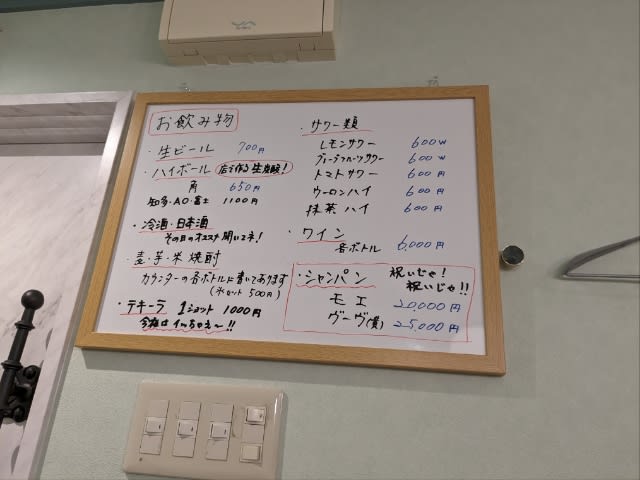 お飲み物
・生ビール 700円
・ハイボール 店で作る生炭酸!
角 650円
知多・AO・富士 1100円
・冷酒・日本酒
その日のオススメ聞いてネ!
・麦・芋・米焼酎
カウンターの各ボトルに書いてあります
(水セット 500円)
・テキーラ 1ショット 1000円
今夜はイッちゃえ〜!!
・サワー類
レモンサワー 600w
グレープフルーツサワー 600w
トマトサワー 600円
ウーロンハイ 600円
抹茶ハイ 600円
・ワイン
各ボトル 6,000円
・シャンパン 祝いじゃ!
祝いじゃ!!
モエ 20,000円
ヴーヴ(黄) 25,000円